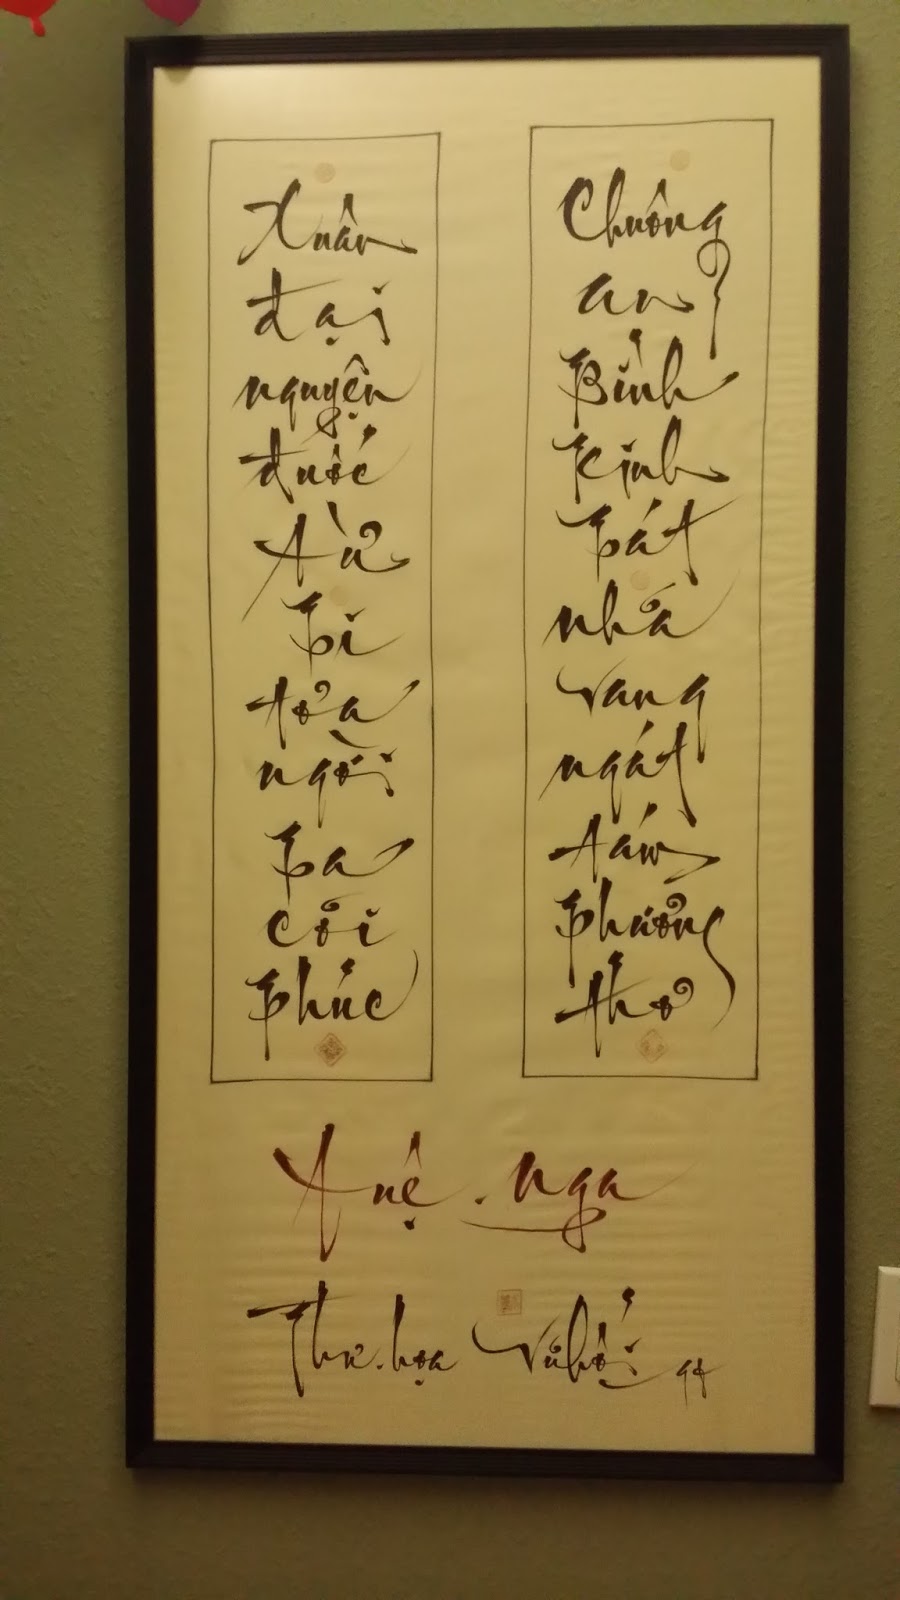 Xuân
đại
nguyện
đuốc
Từ
bi
tỏa
ngời
ba
cõi
phúc
Chuông
an
Bình
Kinh
bát
nhã
vang
ngát
tám
phương
thơ
Tuệ . Nga
Thư.họa Vũ Hối 94